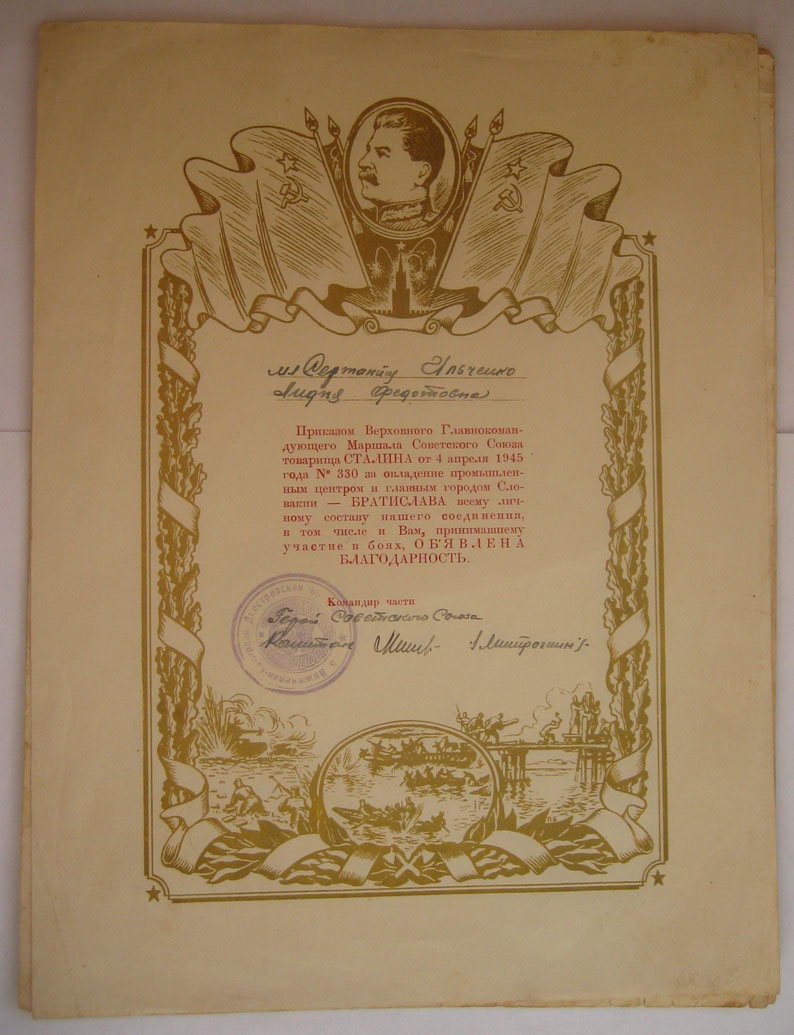 мл Сержанту Ильченко
Лидия Федотовна
Приказом Верховного Главнокоман-
дующего Маршала Советского Союза
товарища СТАЛИНА от 4 апреля 1945
года № 330 за овладение промышлен-
ным центром и главным городом Сло-
вакии — БРАТИСЛАВА всему лич-
ному составу нашего соединения,
в том числе и Вам, принимавшему
участие в боях, ОБ'ЯВЛЕНА
БЛАГОДАРНОСТЬ.
Командир части
Герой Советского Союза
Капитан